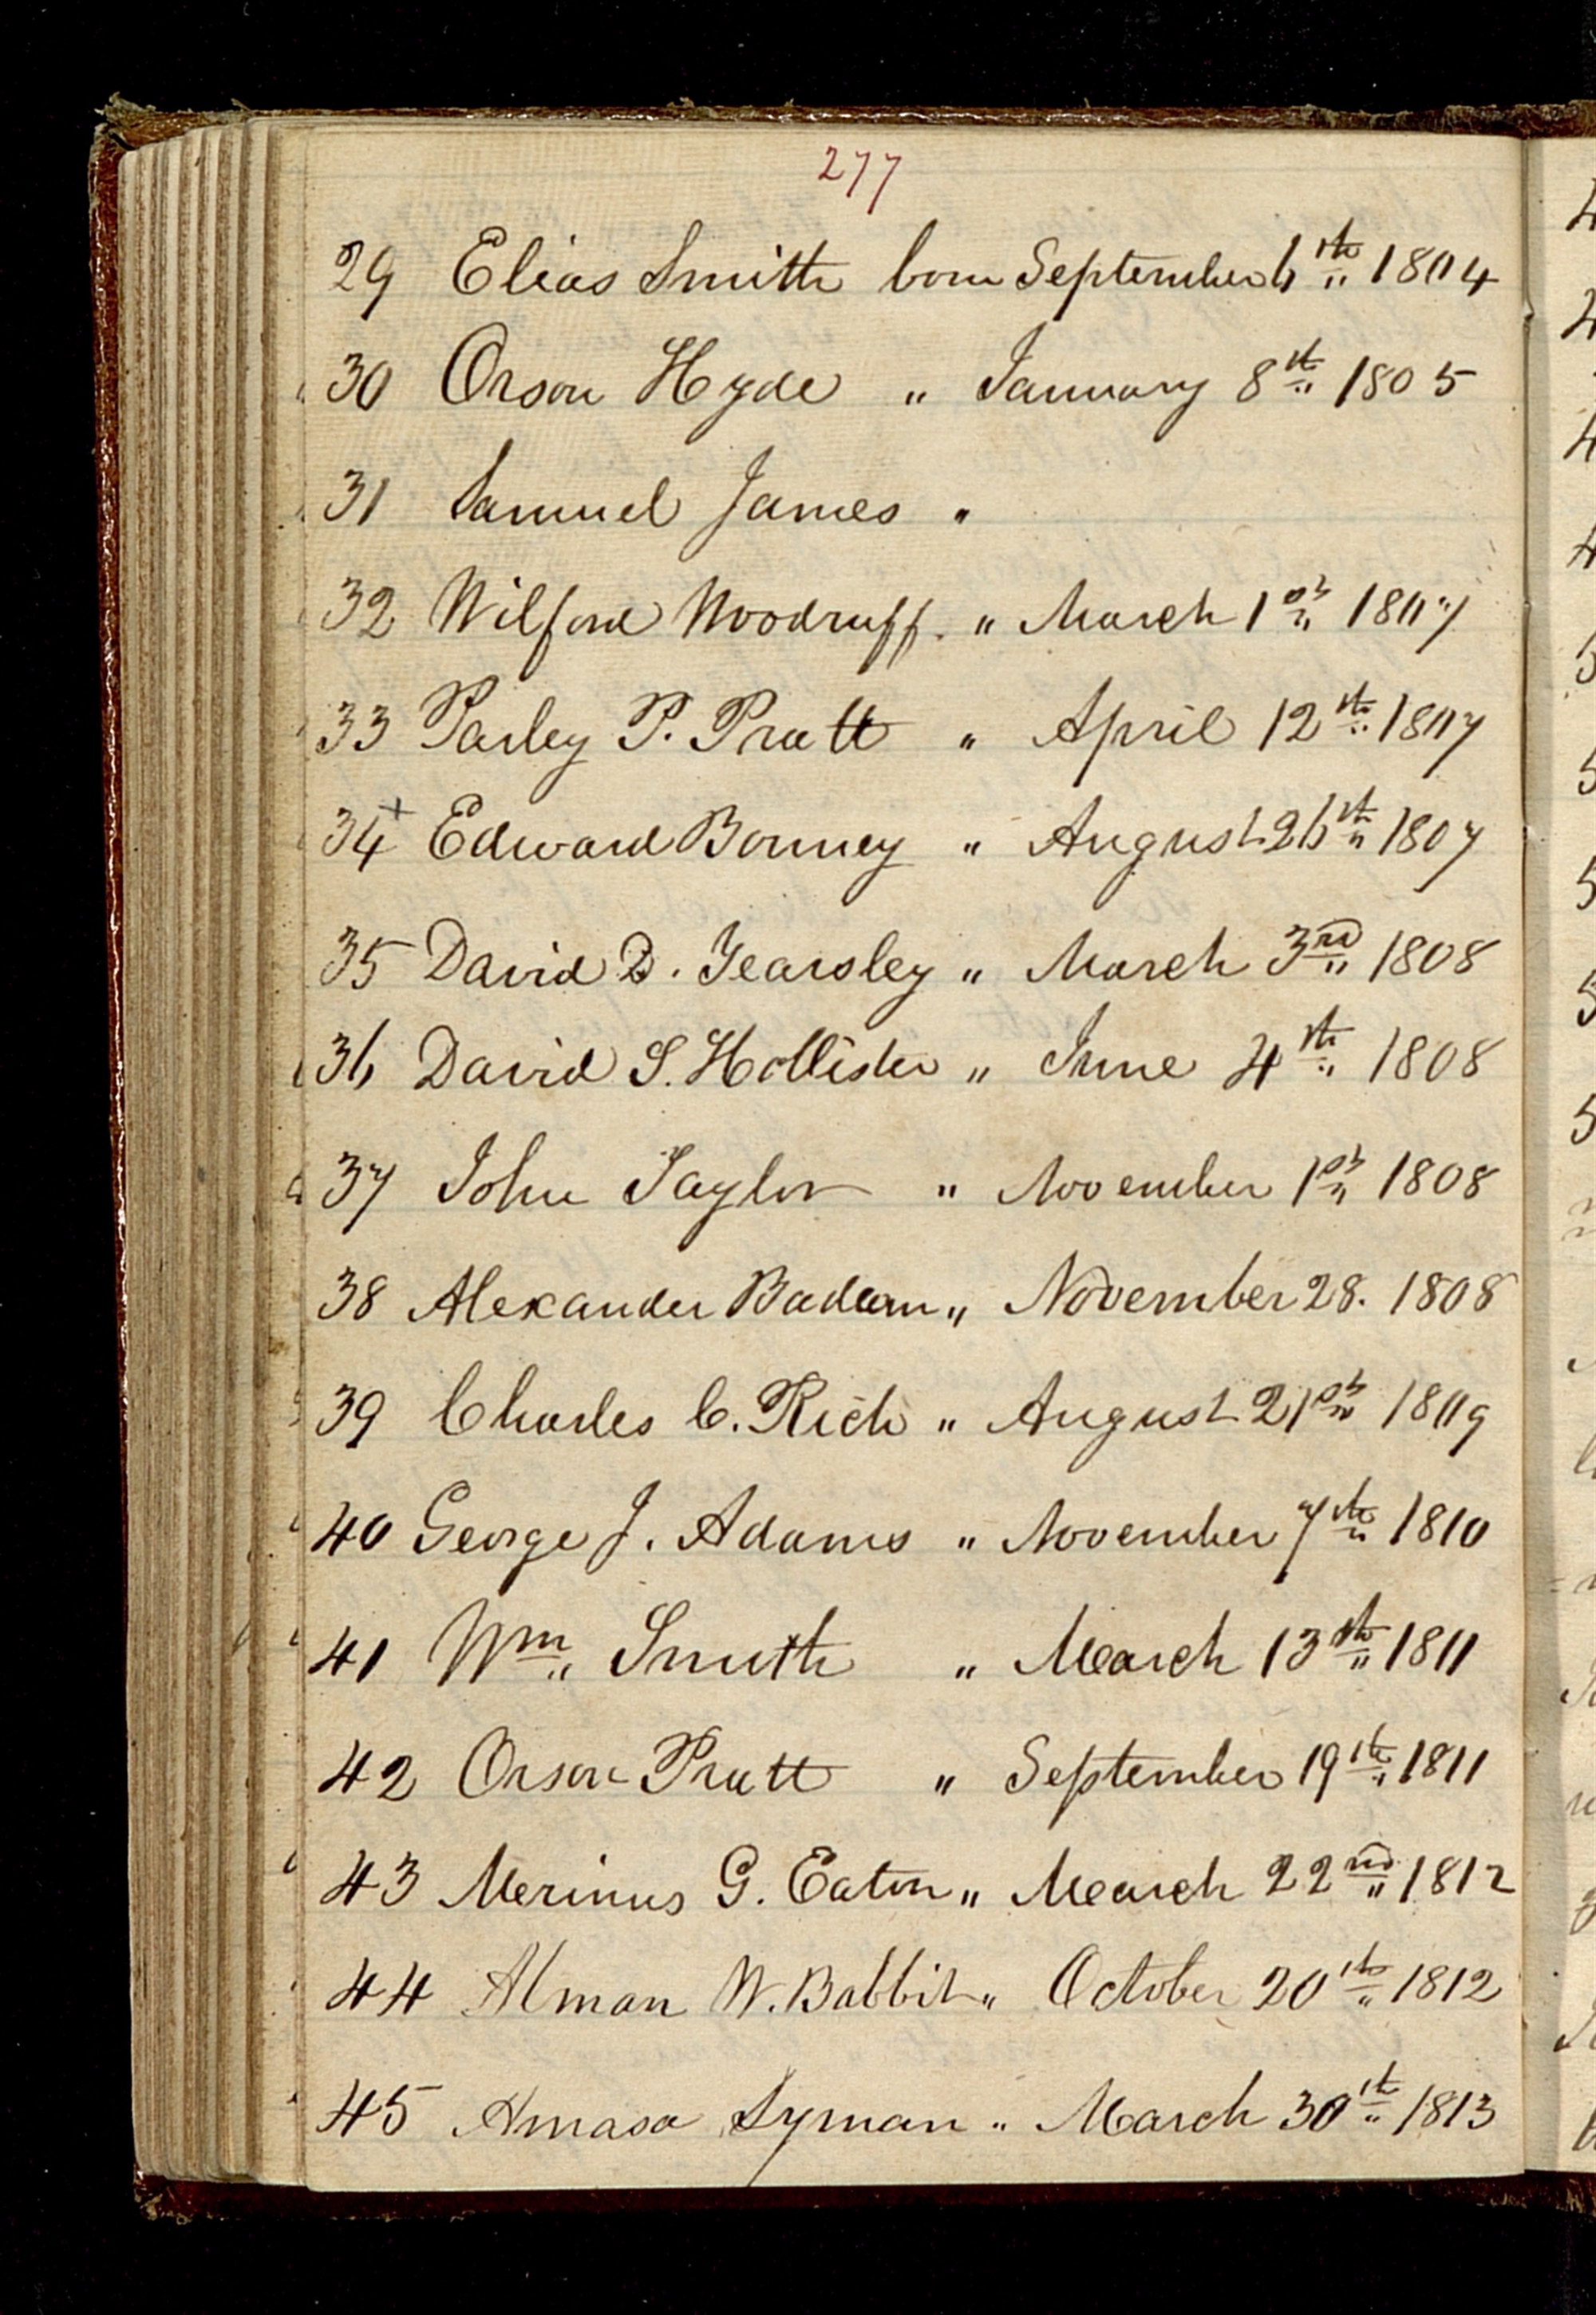 277
29 Elias Smith born September 6th 1804
30 Orson Hyde " January 8th 1805
31 Samuel James "
32 Wilford Woodruff. " March 1st 1807
33 Parley P. Pratt " April 12th 1807
34+ Edward Bonney " August 26th 1807
35 David D. Yearsley " March 3rd 1808
36 David S. Hollister " June 4th 1808
37 John Taylor " November 1st 1808
38 Alexander Badlam " November 28. 1808
39 Charles C. Rich " August 21st 1809
40 George J. Adams " November 7th 1810
41 Wm Smith " March 13th 1811
42 Orson Pratt " September 19th 1811
43 Merinus G. Eaton " March 22nd 1812
44 Almon W. Babbit " October 20th 1812
45 Amasa Lyman " March 30th 1813